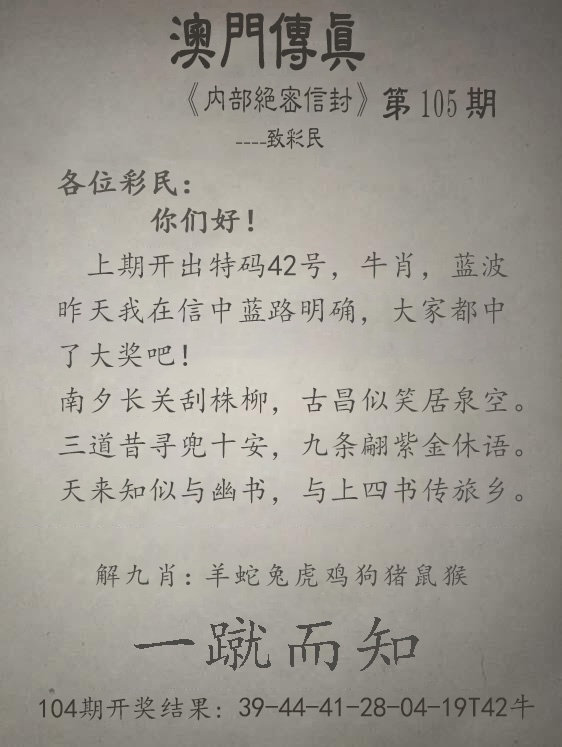 澳門傳眞
《内部絕密信封》第105期
----致彩民
各位彩民：
你们好！
上期开出特码42号，牛肖，蓝波
昨天我在信中蓝路明确，大家都中
了大奖吧！
南夕长关刮株柳，古昌似笑居泉空。
三道昔寻兜十安，九条翩紫金休语。
天来知似与幽书，与上四书传旅乡。
解九肖：羊蛇兔虎鸡狗猪鼠猴
一蹴而知
104期开奖结果：39-44-41-28-04-19T42牛